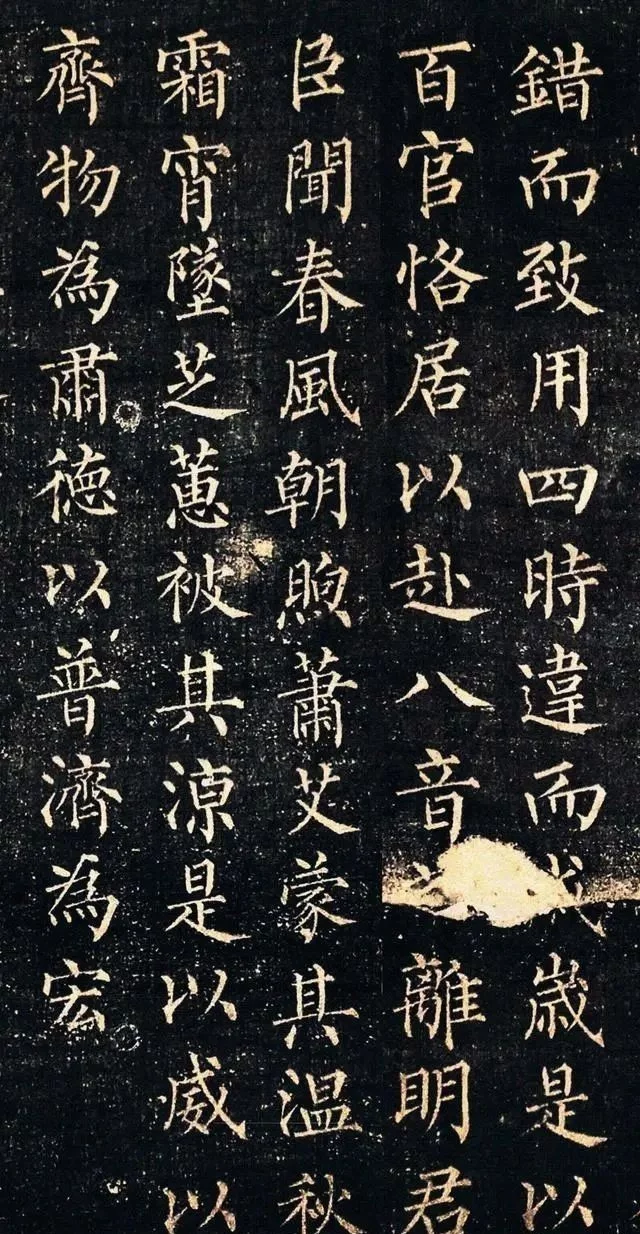 錯而致用四時違而成歲是以
百官恪居以赴八音之離明君
臣聞春風朝煦蕭艾蒙其温秋
霜宵墜芝蕙被其涼是以威以
齊物為肅德以普濟為宏